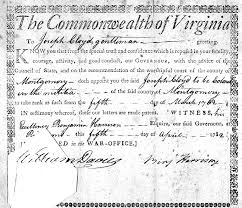 The Commonwealth of Virginia
To Joseph Cloyd, gentleman greeting.
KNOW you that from the special trust and confidence which is reposed in your fidelity,
courage, activity, and good conduct, our Governour, with the advice of the
Council of State, and on the recommendation of the worshipful court of the county of
Montgomery doth appoint you the said Joseph Cloyd to be
in the militia of the said county of Montgomery
to take rank as such from the fifth day of March 178
In testimony whereof, these our letters are made patent. WITNESS, his
Excellency Benjamin Harrison Esquire, our said Governour,
fifth day of April
ED in the WAR-OFFICE.
William Davies Benj Harrison